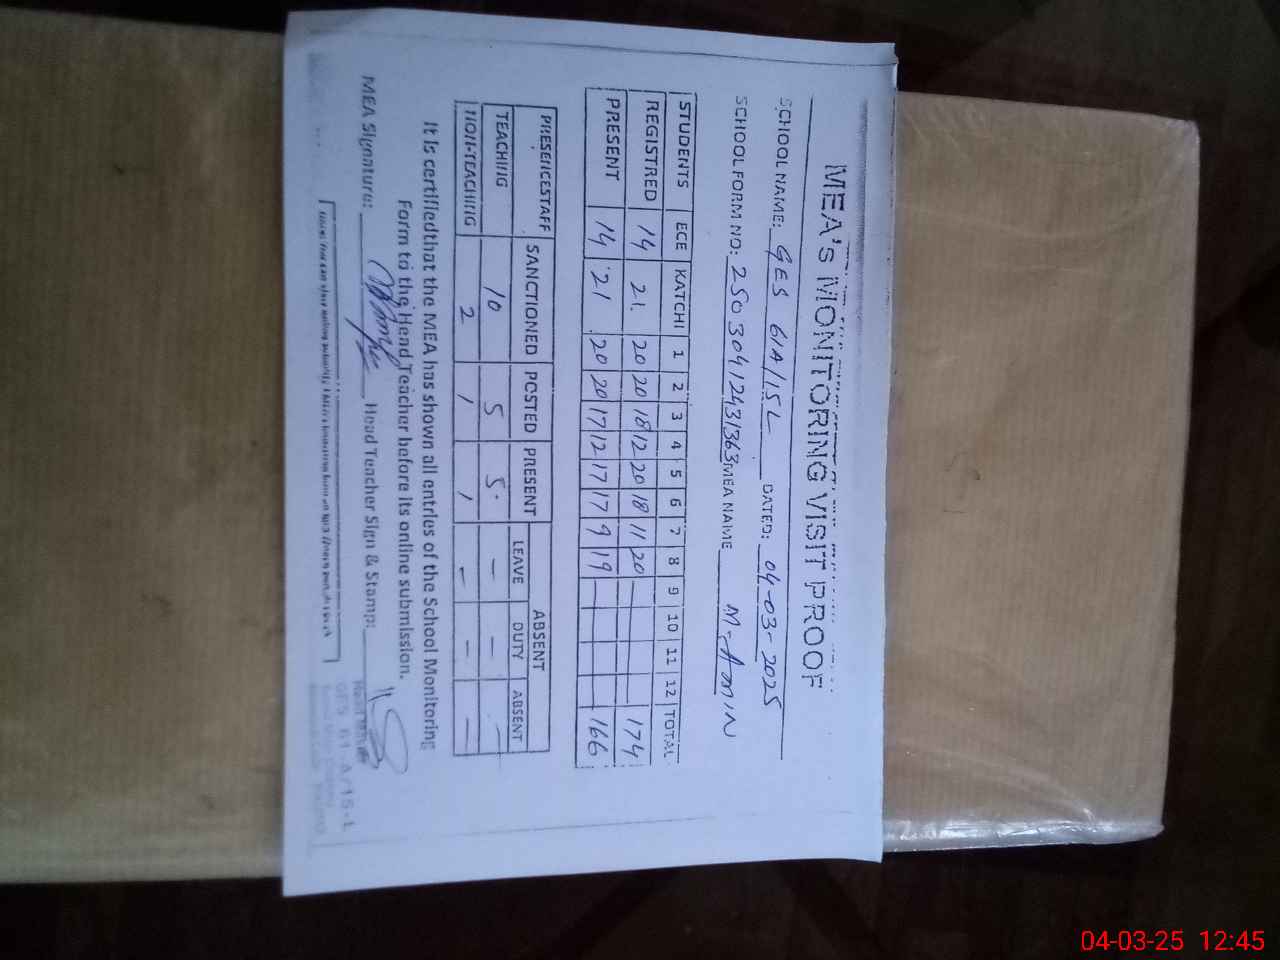 MEA's MONITORING VISIT PROOF
SCHOOL NAME: GES 61A/15L DATED: 04-03-2025
SCHOOL FORM NO: 25030412431363 MEA NAME M-Amin
STUDENTS ECE KATCHI 1 2 3 4 5 6 7 8 9 10 11 12 TOTAL
REGISTRED 14 21 20 20 18 12 20 18 11 20 174
PRESENT 14 21 20 20 17 12 17 17 9 19 166
PRESENCESTAFF SANCTIONED POSTED PRESENT ABSENT
LEAVE DUTY ABSENT
TEACHING 10 5 5 - - -
NON-TEACHING 2 1 1 - - -
It is certifiedthat the MEA has shown all entries of the School Monitoring
Form to the Head Teacher before its online submission.
MEA Signature: Head Teacher Sign & Stamp:
GES 61-A/15-L
04-03-25 12:45